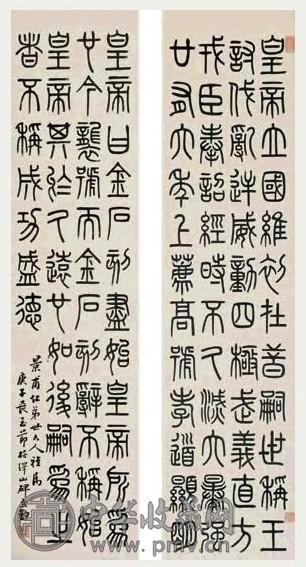 皇帝立國維初在昔嗣世稱王
討伐亂逆威動四極武義直方
戎臣奉詔經時不久滅六暴強
廿有六年上薦高號孝道顯明
皇帝曰金石刻盡始皇帝所為
也今襲號而金石刻辭不稱始
皇帝其於久遠也如後嗣為之
者不稱成功盛德
景甫仁弟大人雅屬
庚子長至節臨嶧山碑
中华收藏网